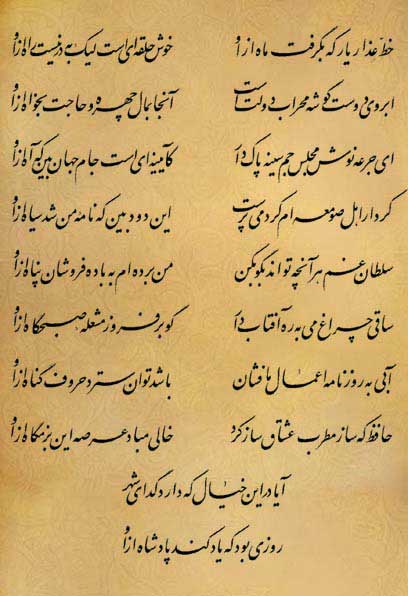 خط عذار یار که بگرفت ماه ازو خوش حلقه‌ای است لیک به در نیست راه ازو
ابروی دوست گوشه محراب دولت است آنجا بمال چهره و حاجت بخواه ازو
ای جرعه نوش مجلس جم سینه پاک دار کآیینه‌ای است جام جهان بین که آه ازو
کردار اهل صومعه‌ام کرد می پرست این دود بین که نامه من شد سیاه ازو
سلطان غم هر آنچه تواند بگو بکن من برده‌ام به باده فروشان پناه ازو
ساقی چراغ می به ره آفتاب دار گو برفروز مشعله صبحگاه ازو
آبی به روزنامه اعمال ما فشان باشد توان سترد حروف گناه ازو
حافظ که ساز مطرب عشاق ساز کرد خالی مباد عرصه این بزمگاه ازو
آیا در این خیال که دارد گدای شهر
روزی بود که یاد کند پادشاه ازو